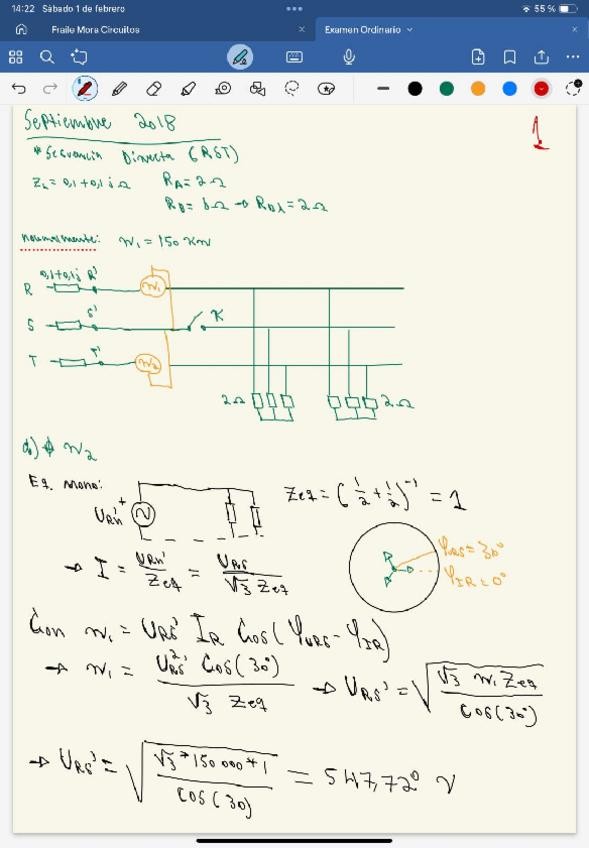 14:22 Sábado 1 de febrero
55 %
Fraile Mora Circuitos
Examen Ordinario
Septiembre 2018
1
*Secuencia Directa (RST)
ZL = 0,1+0,1j Ω RA = 2Ω
RB = 6Ω → RBλ = 2Ω
normalmente: W1 = 150 KW
0,1+0,1j R'
R
W1
S'
S
K
T'
T
W2
2Ω
2Ω
W2
Eq. mono:
+
URn'
Zeq = (1/2 + 1/2)^-1 = 1
→ I = URn'/Zeq = URS/√3 Zeq
φURS = 30°
φIR = 0°
Con W1 = URS' IR Cos(φURS - φIR)
→ W1 = URS'² Cos(30°)/√3 Zeq → URS' = √(√3 W1 Zeq/Cos(30°))
→ URS' = √(√3*150000*1/Cos(30)) = 547,72° V